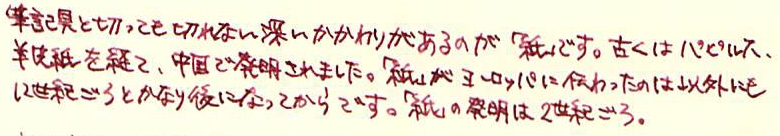 筆記具と切っても切れない深いかかわりがあるのが「紙」です。古くはパピルス、
羊皮紙を経て、中国で発明されました。「紙」がヨーロッパに伝わったのは以外にも
12世紀ごろとかなり後になってからです。「紙」の発明は2世紀ごろ。